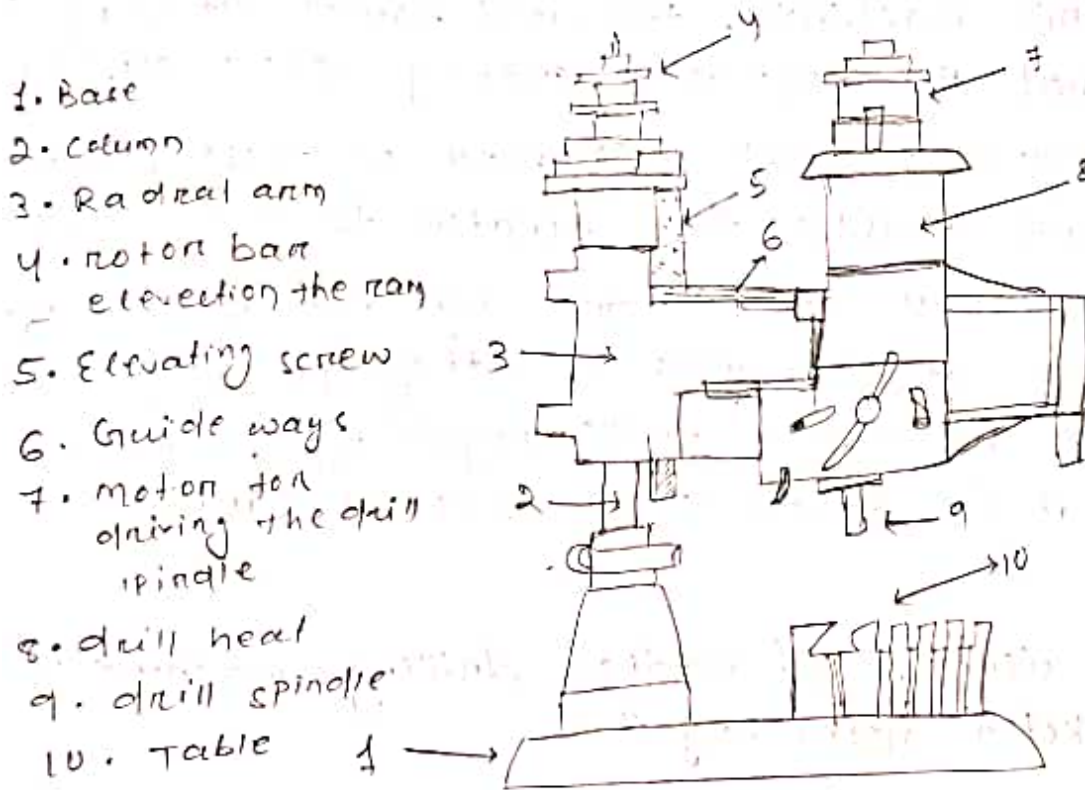 1. Base
2. column
3. Radial arm
4. motor bar
elevection the ram
5. Elevating screw
6. Guide ways
7. motor for
driving the drill
spindle
8. drill head
9. drill spindle
10. Table
4
7
5
8
6
3
2
9
10
1